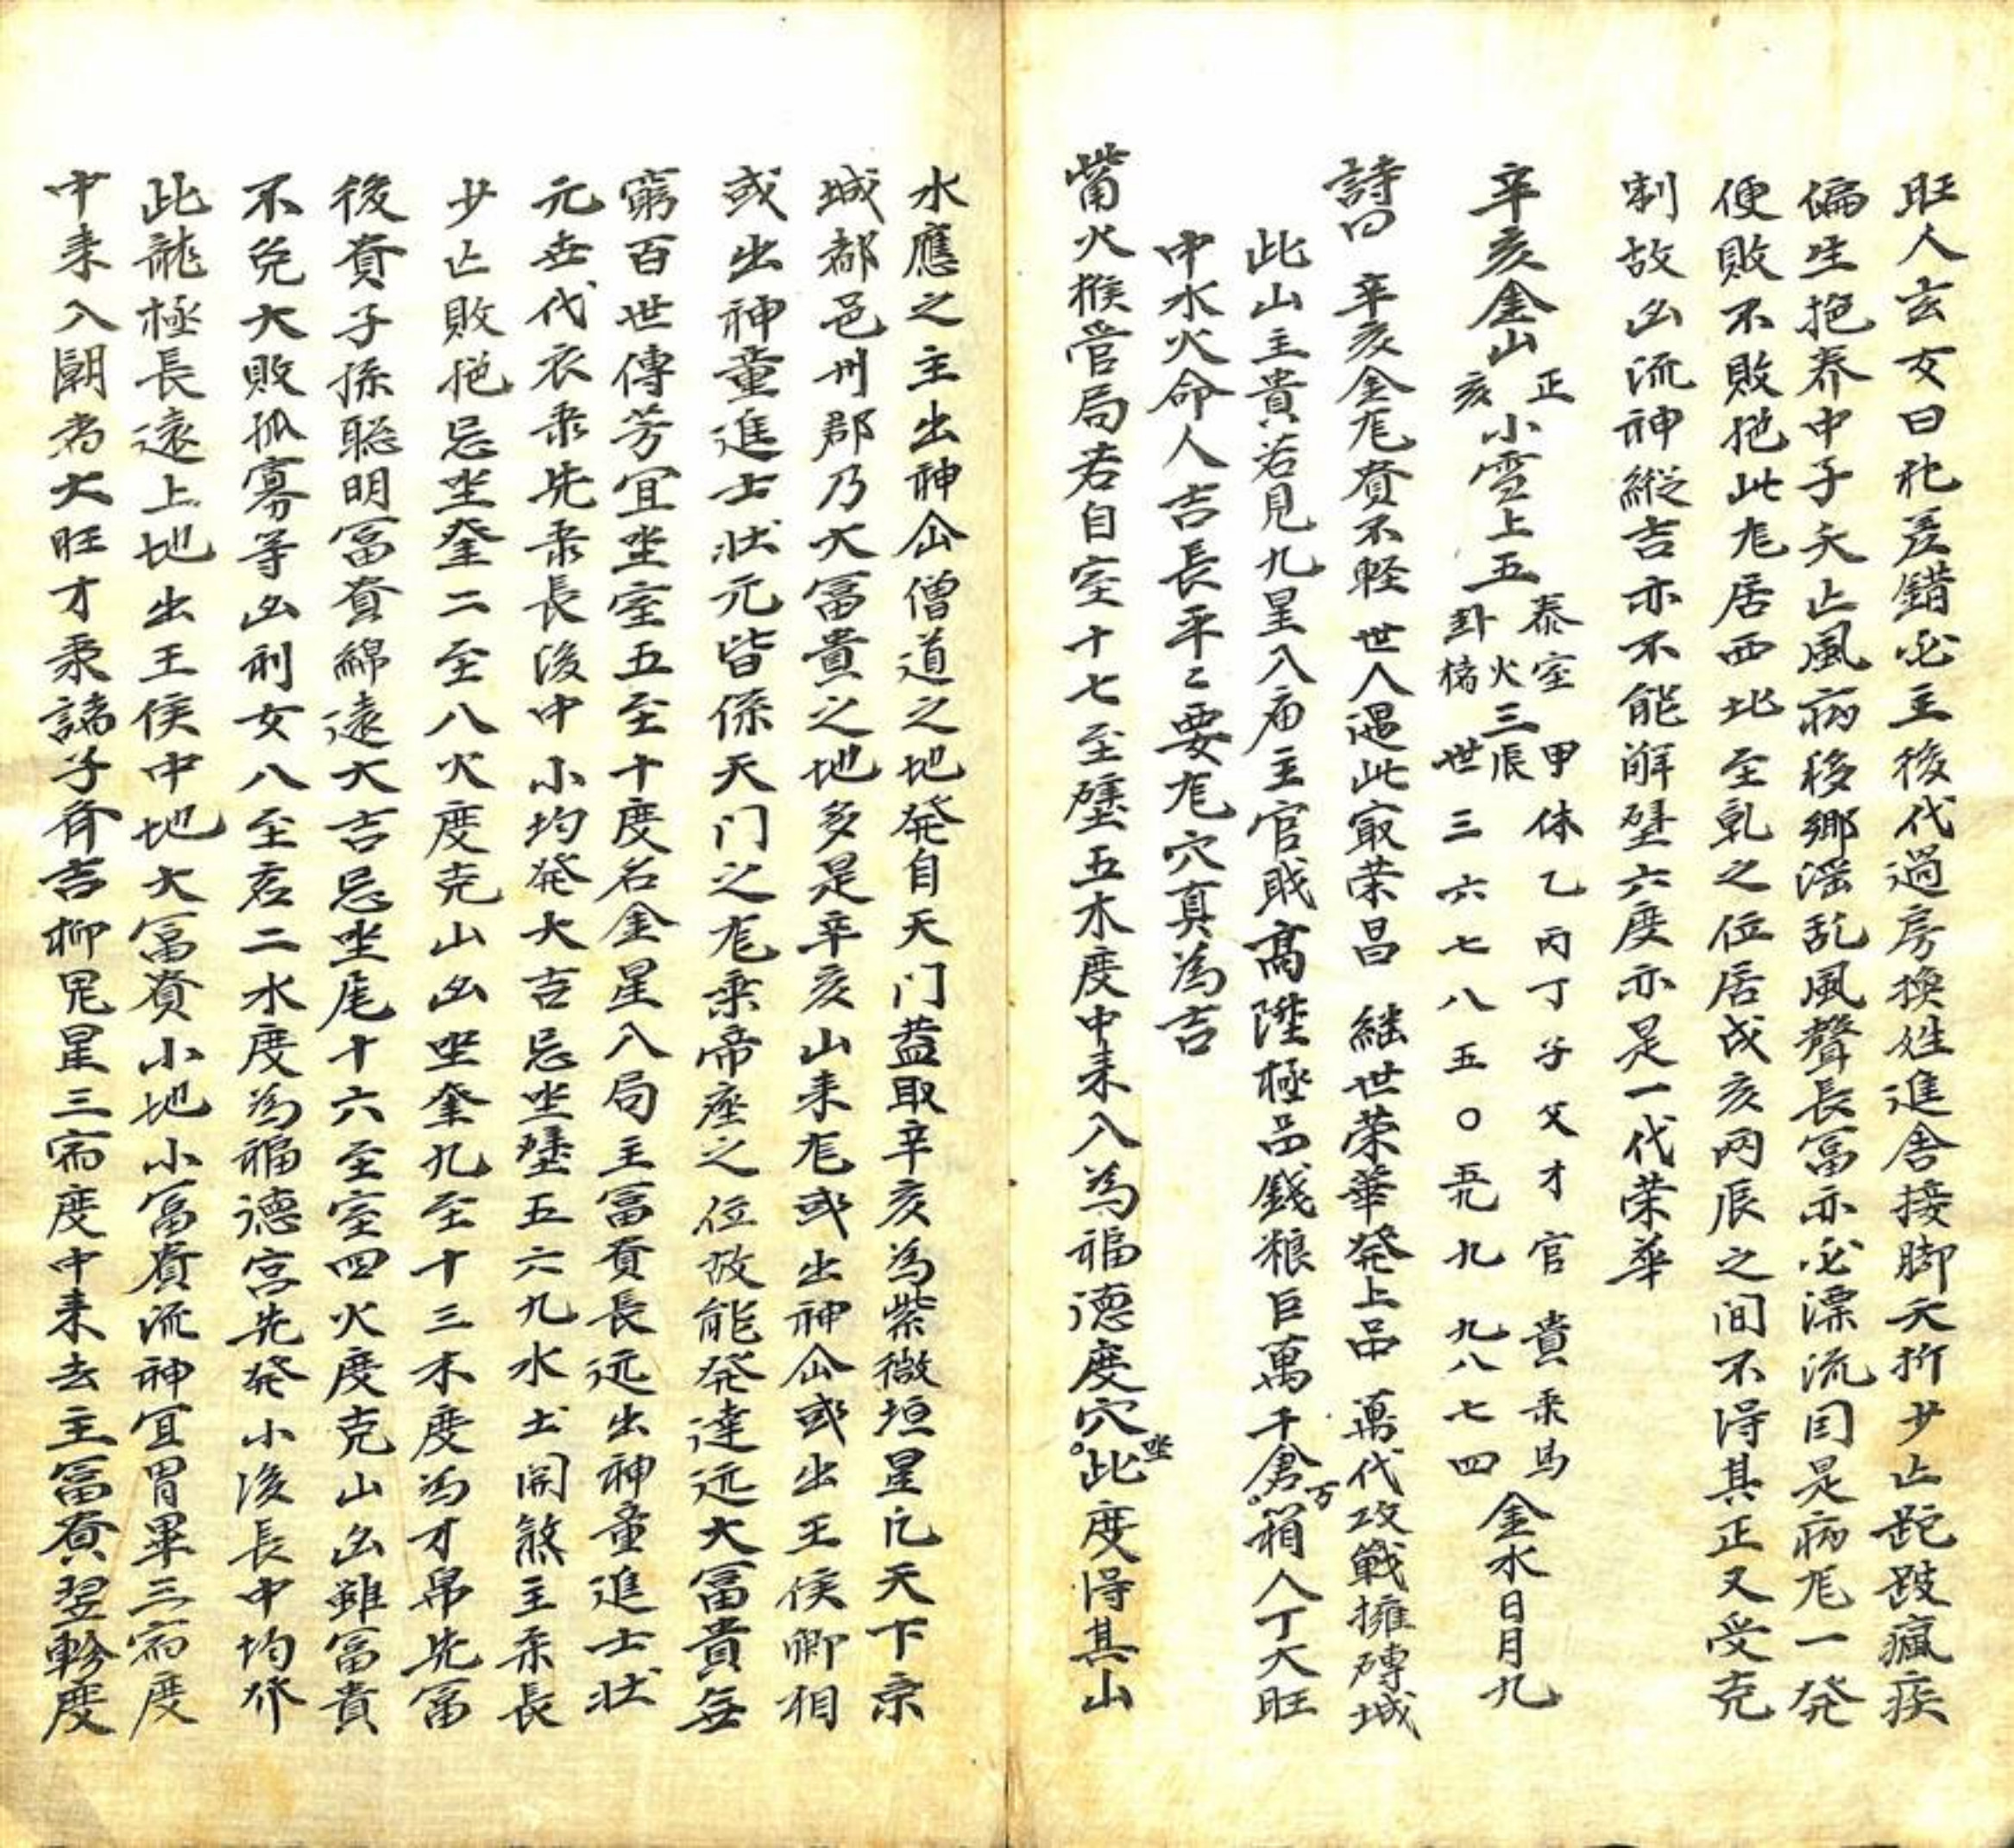 旺人玄女曰犯差錯必主後代過房換姓進舍接脚夭折少亡跎跛瘋疾
偏生抱养中子夭亡風病移鄉淫乱風聲長富亦必漂流囙是病龙一発
便敗不敗抱此龙居西北至乹之位居戌亥两辰之间不得其正又受克
制故凶流神縱吉亦不能解壁六度亦是一代荣華
辛亥金山正亥小雪上五泰卦室火橘三甲辰世休三乙六丙七丁八子五父〇才官九貴九八乗七馬四金水日月九
詩曰 辛亥金龙貴不軽 世人遇此寂荣昌 继世荣華発上品 萬代攻戰擁磚城
此山主貴若見九星入庙主官职高陞極品錢粮巨萬千倉万箱人丁大旺
中水火命人吉長平〻要龙穴真為吉
觜火猴管局若自室十七至壁五木度中来入為福德度穴坐此度得其山
水應之主出神仚僧道之地発自天门蓋取辛亥為紫微垣星凡天下京
城都邑州郡乃大富貴之地多是辛亥山来龙或出神仚或出王侯卿相
或出神童進士状元皆係天门之龙乗帝座之位故能発達远大富貴無
窮百世傳芳宜坐室五至十度名金星八局主富貴長远出神童進士状
元世代衣乗先乗長後中小均発大吉忌坐壁五六九水土関煞主乗長
少亡敗抱忌坐奎二至八火度克山凶坐奎九至十三木度為才帛先富
後貴子孫聪明富貴綿遠大吉忌坐尾十六至室四火度克山凶雖富貴
不免大敗孤寡等凶利女八至危二水度為福德宮先発小後長中均发
此龍極長遠上地出王侯中地大富貴小地小富貴流神宜胃畢三宿度
中来入朝者大旺才乗謫子斉吉柳鬼星三宿度中来去主富貴翌軫度